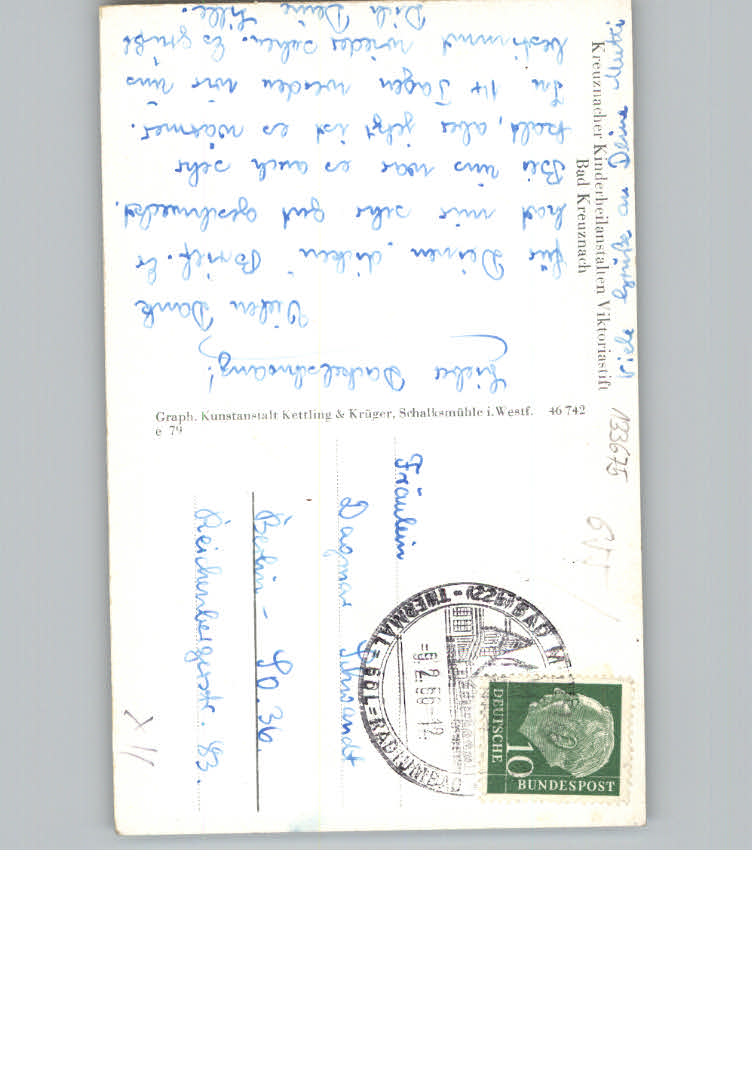 Kreuznacher Kinderheilanstalten Viktoriastift
Bad Kreuznach
Lieber Dackelschwanz!
Vielen Dank
für Deinen "dicken" Brief. Er
hat mir sehr gut geschmeckt.
Bei uns war es auch sehr
kalt, aber jetzt ist es wärmer.
In 14 Tagen werden wir uns
bestimmt wieder sehen. Es grüßt
Dich Deine
Viele Grüße an Deine Mutti
Graph. Kunstanstalt Kettling & Krüger, Schalksmühle i. Westf. 46 742
e 79
133675
Fräulein
Dagmar Schwandt
Berlin - SO. 36.
Reichenbergerstr. 83.
(22a) BAD
THERMAL=SOL=RADIUMBAD
-9.2.56-12
DEUTSCHE
BUNDESPOST
10